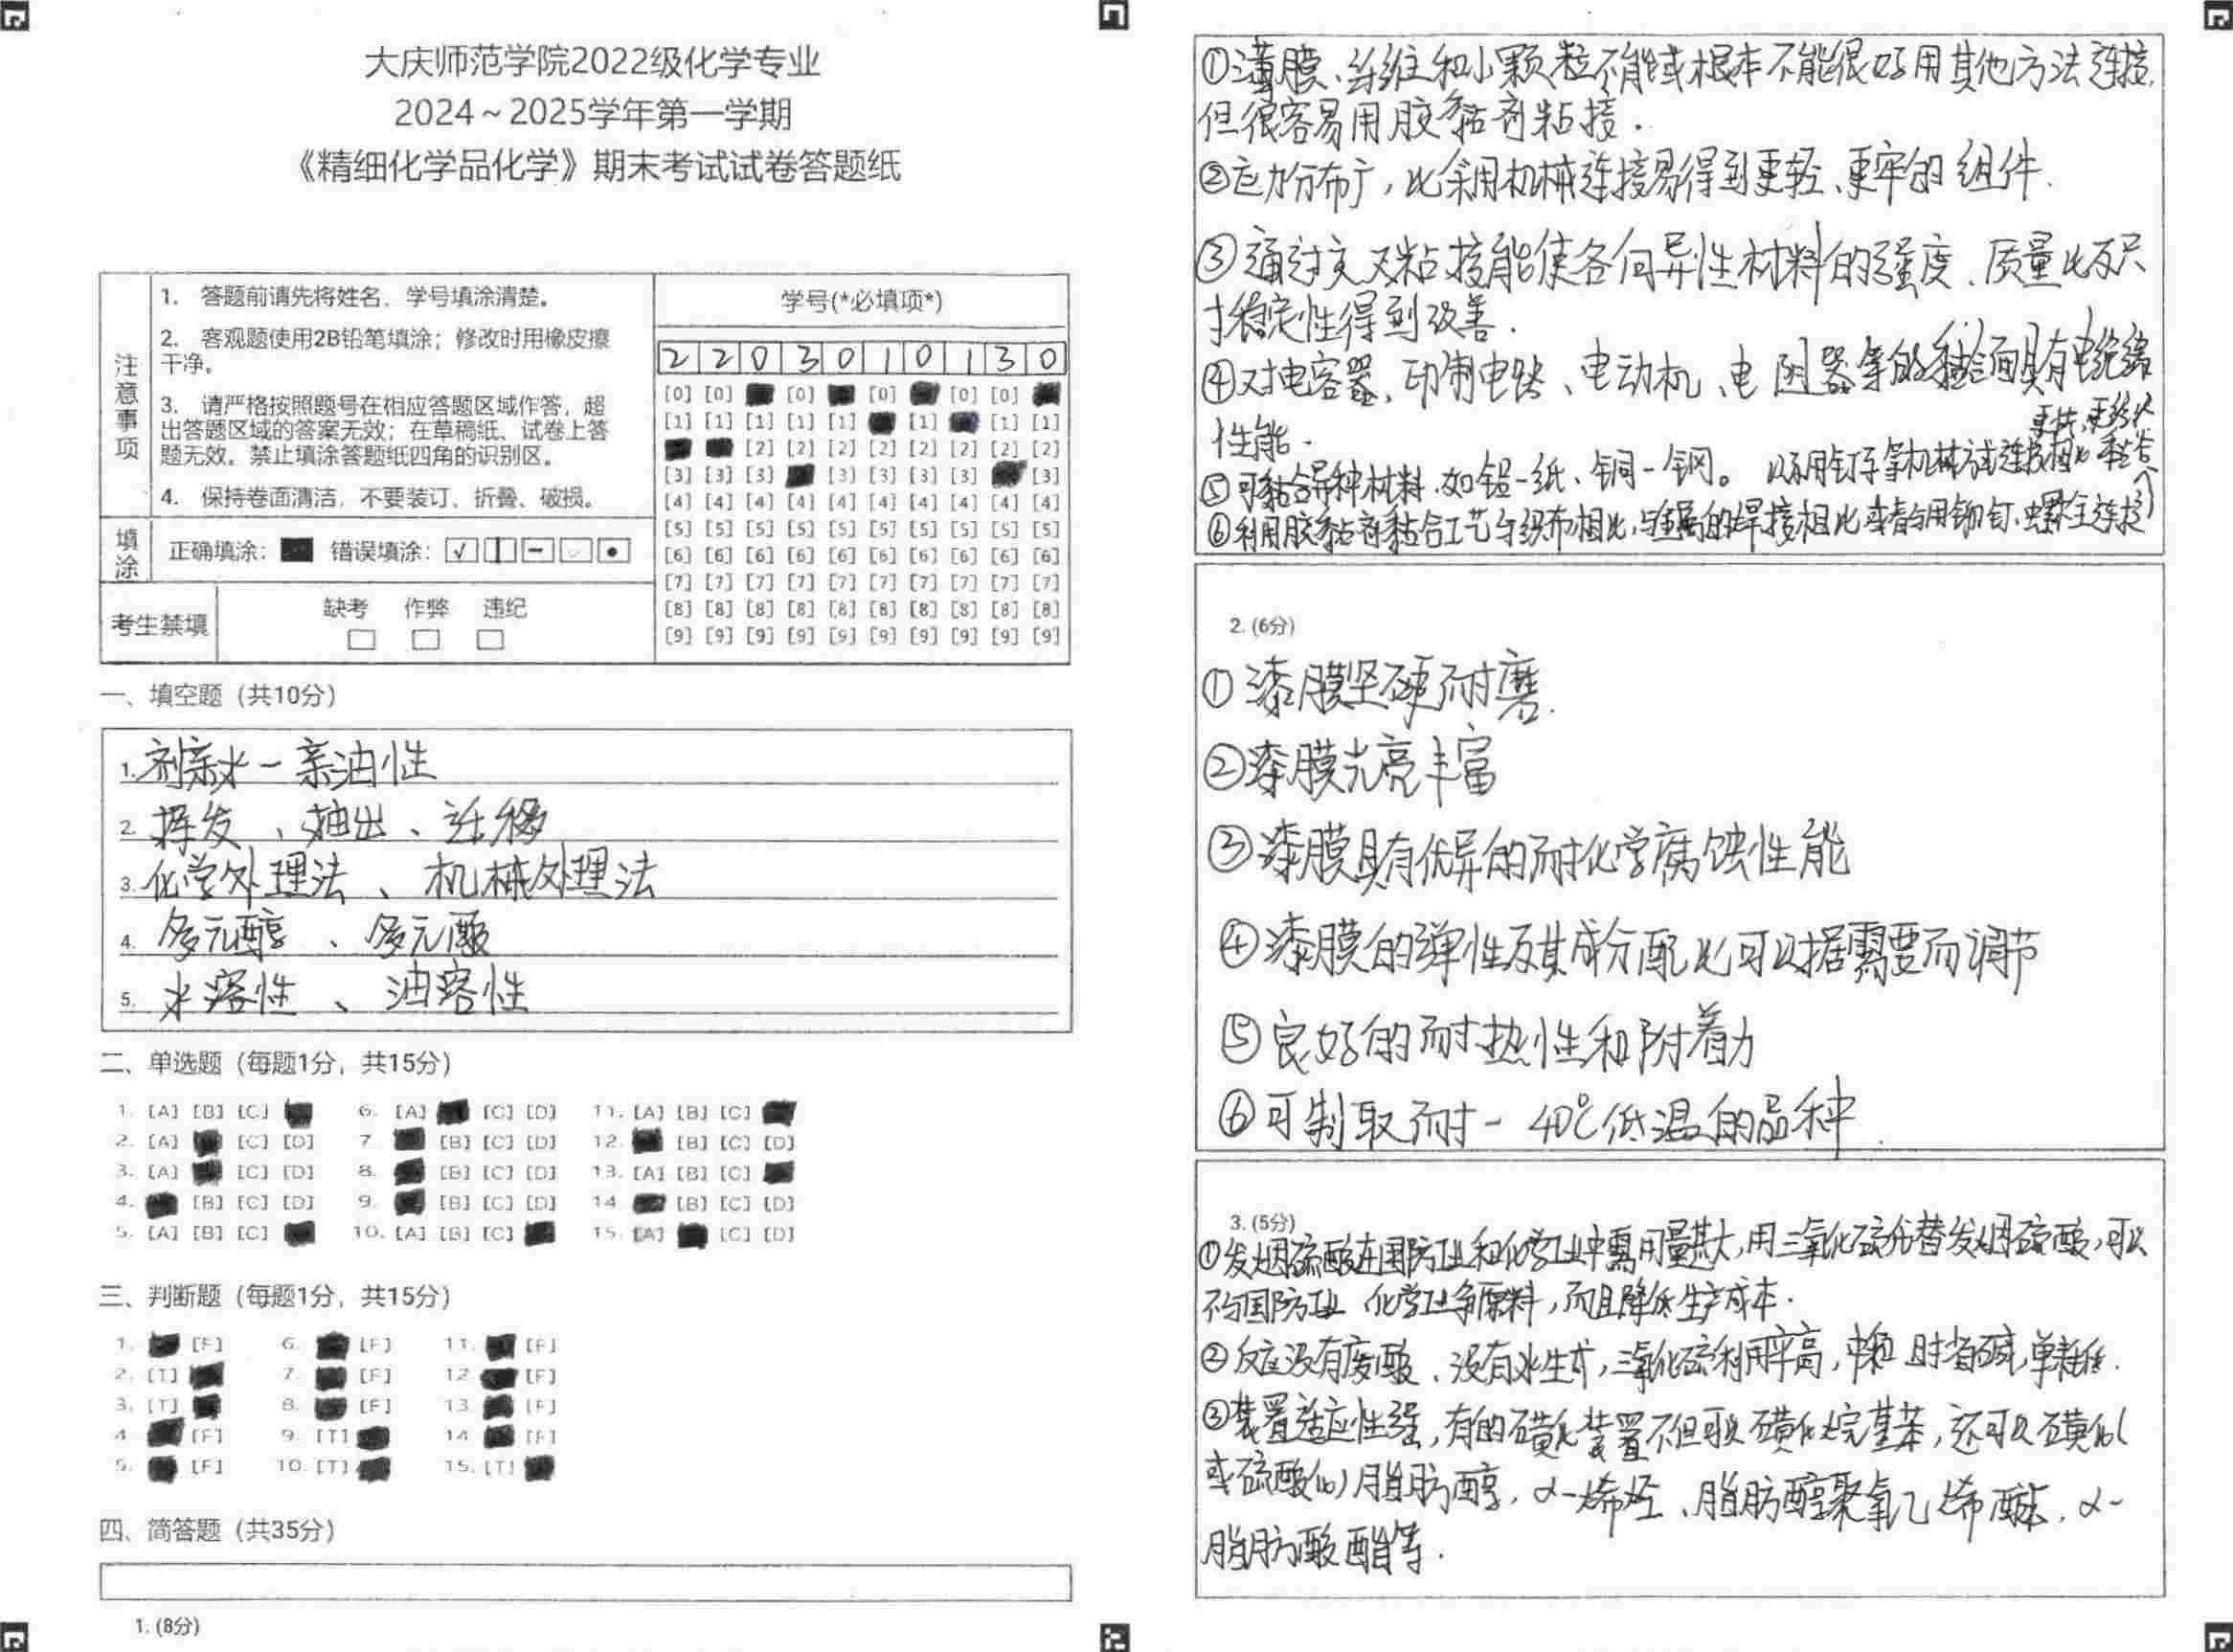 大庆师范学院2022级化学专业
2024～2025学年第一学期
《精细化学品化学》期末考试试卷答题纸
注意事项
1. 答题前请先将姓名、学号填涂清楚。
2. 客观题使用2B铅笔填涂；修改时用橡皮擦
干净。
3. 请严格按照题号在相应答题区域作答，超
出答题区域的答案无效；在草稿纸、试卷上答
题无效。禁止填涂答题纸四角的识别区。
4. 保持卷面清洁，不要装订、折叠、破损。
填涂
正确填涂： 错误填涂：
考生禁填
缺考 作弊 违纪
学号(*必填项*)
2 2 0 3 0 1 0 1 3 0
[0] [0] [0] [0] [0] [0]
[1] [1] [1] [1] [1] [1] [1] [1]
[2] [2] [2] [2] [2] [2] [2] [2]
[3] [3] [3] [3] [3] [3] [3] [3]
[4] [4] [4] [4] [4] [4] [4] [4] [4] [4]
[5] [5] [5] [5] [5] [5] [5] [5] [5] [5]
[6] [6] [6] [6] [6] [6] [6] [6] [6] [6]
[7] [7] [7] [7] [7] [7] [7] [7] [7] [7]
[8] [8] [8] [8] [8] [8] [8] [8] [8] [8]
[9] [9] [9] [9] [9] [9] [9] [9] [9] [9]
一、填空题（共10分）
1. 剂亲水－亲油性
2. 挥发、抽出、迁移
3. 化学处理法、机械处理法
4. 多元醇、多元酸
5. 水溶性、油溶性
二、单选题（每题1分，共15分）
1. [A] [B] [C] 6. [A] [C] [D] 11. [A] [B] [C]
2. [A] [C] [D] 7. [B] [C] [D] 12. [B] [C] [D]
3. [A] [C] [D] 8. [B] [C] [D] 13. [A] [B] [C]
4. [B] [C] [D] 9. [B] [C] [D] 14. [B] [C] [D]
5. [A] [B] [C] 10. [A] [B] [C] 15. [A] [C] [D]
三、判断题（每题1分，共15分）
1. [F] 6. [F] 11. [F]
2. [T] 7. [F] 12. [F]
3. [T] 8. [F] 13. [F]
4. [F] 9. [T] 14. [F]
5. [F] 10. [T] 15. [T]
四、简答题（共35分）
1. (8分)
①薄膜、纤维和小颗粒不能或根本不能很好用其他方法连接，
但很容易用胶黏剂粘接.
②应力分布广，比采用机械连接易得到更轻、更牢的组件.
③通过交叉粘接能使各向异性材料的强度、质量比及尺
寸稳定性得到改善.
④对电容器、印制电路、电动机、电阻器等的黏合面具有电绝缘
性能.
⑤可黏合异种材料.如铝－纸、铜－钢。
⑥利用胶黏剂黏合工艺与织布相比，与金属的焊接相比或者与用铆钉、螺栓连接
2. (6分)
①漆膜坚硬耐磨.
②漆膜光亮丰富
③漆膜具有优异的耐化学腐蚀性能
④漆膜的弹性及其成分配比可以据需要而调节
⑤良好的耐热性和附着力
⑥可制取耐－40℃低温的品种.
3. (5分)
①发烟硫酸在国防工业和化学工业中需用量甚大，用三氧化硫代替发烟硫酸，可以
不与国防工业 化学工业争原料，而且降低生产成本.
②反应没有废酸、没有水生成，三氧化硫利用率高，中和时省碱，单耗低.
③装置适应性强，有的磺化装置不但可以磺化烷基苯，还可以磺化(
或硫酸化)脂肪醇，α－烯烃、脂肪醇聚氧乙烯醚、α－
脂肪酸酯等.